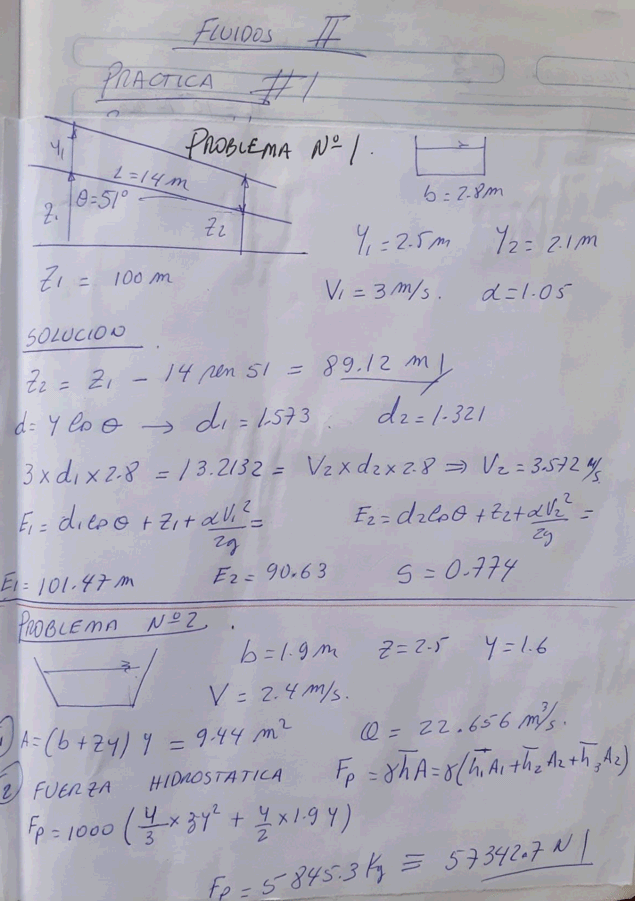 FLUIDOS II
PRACTICA #1
PROBLEMA Nº 1.
Y1
L=14m
θ=51°
Z1
Z2
b=2.8m
Y1 = 2.5m Y2 = 2.1m
Z1 = 100 m
V1 = 3 m/s. α=1.05
SOLUCION.
Z2 = Z1 - 14 sen 51 = 89.12 m
d = Y cos θ → d1 = 1.573. d2 = 1.321
3 x d1 x 2.8 = 13.2132 = V2 x d2 x 2.8 ⇒ V2 = 3.572 m/s
E1 = d1 cos θ + Z1 + αV1²/2g = E2 = d2 cos θ + Z2 + αV2²/2g =
E1 = 101.47 m E2 = 90.63 S = 0.774
PROBLEMA Nº 2.
b = 1.9 m Z = 2.5 Y = 1.6
V = 2.4 m/s.
1) A = (b + ZY) Y = 9.44 m² Q = 22.656 m³/s.
2) FUERZA HIDROSTATICA Fp = γh̄A = γ(h̄1A1 + h̄2A2 + h̄3A2)
Fp = 1000 (Y/3 x 3Y² + Y/2 x 1.9Y)
Fp = 5845.3 Kg ≡ 57342.7 N